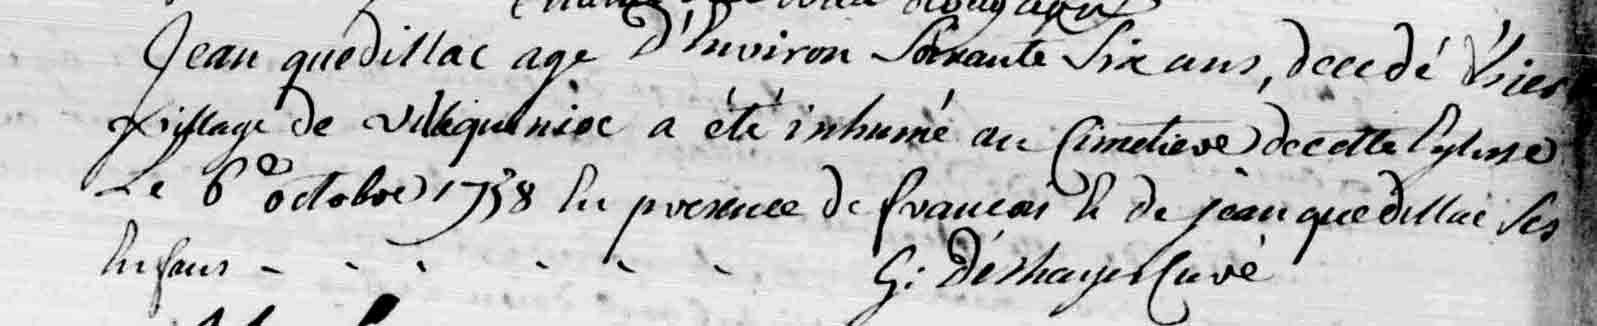 Jean quedillac age d'Environ Soixante Six ans, decedé hier
village de villequenioc a été inhumé au Cimetiere de cette Eglise
Le 6e octobre 1738 En presence de francois & de jean quedillac Ses
Enfans - - - - - - G: Déshayes Curé